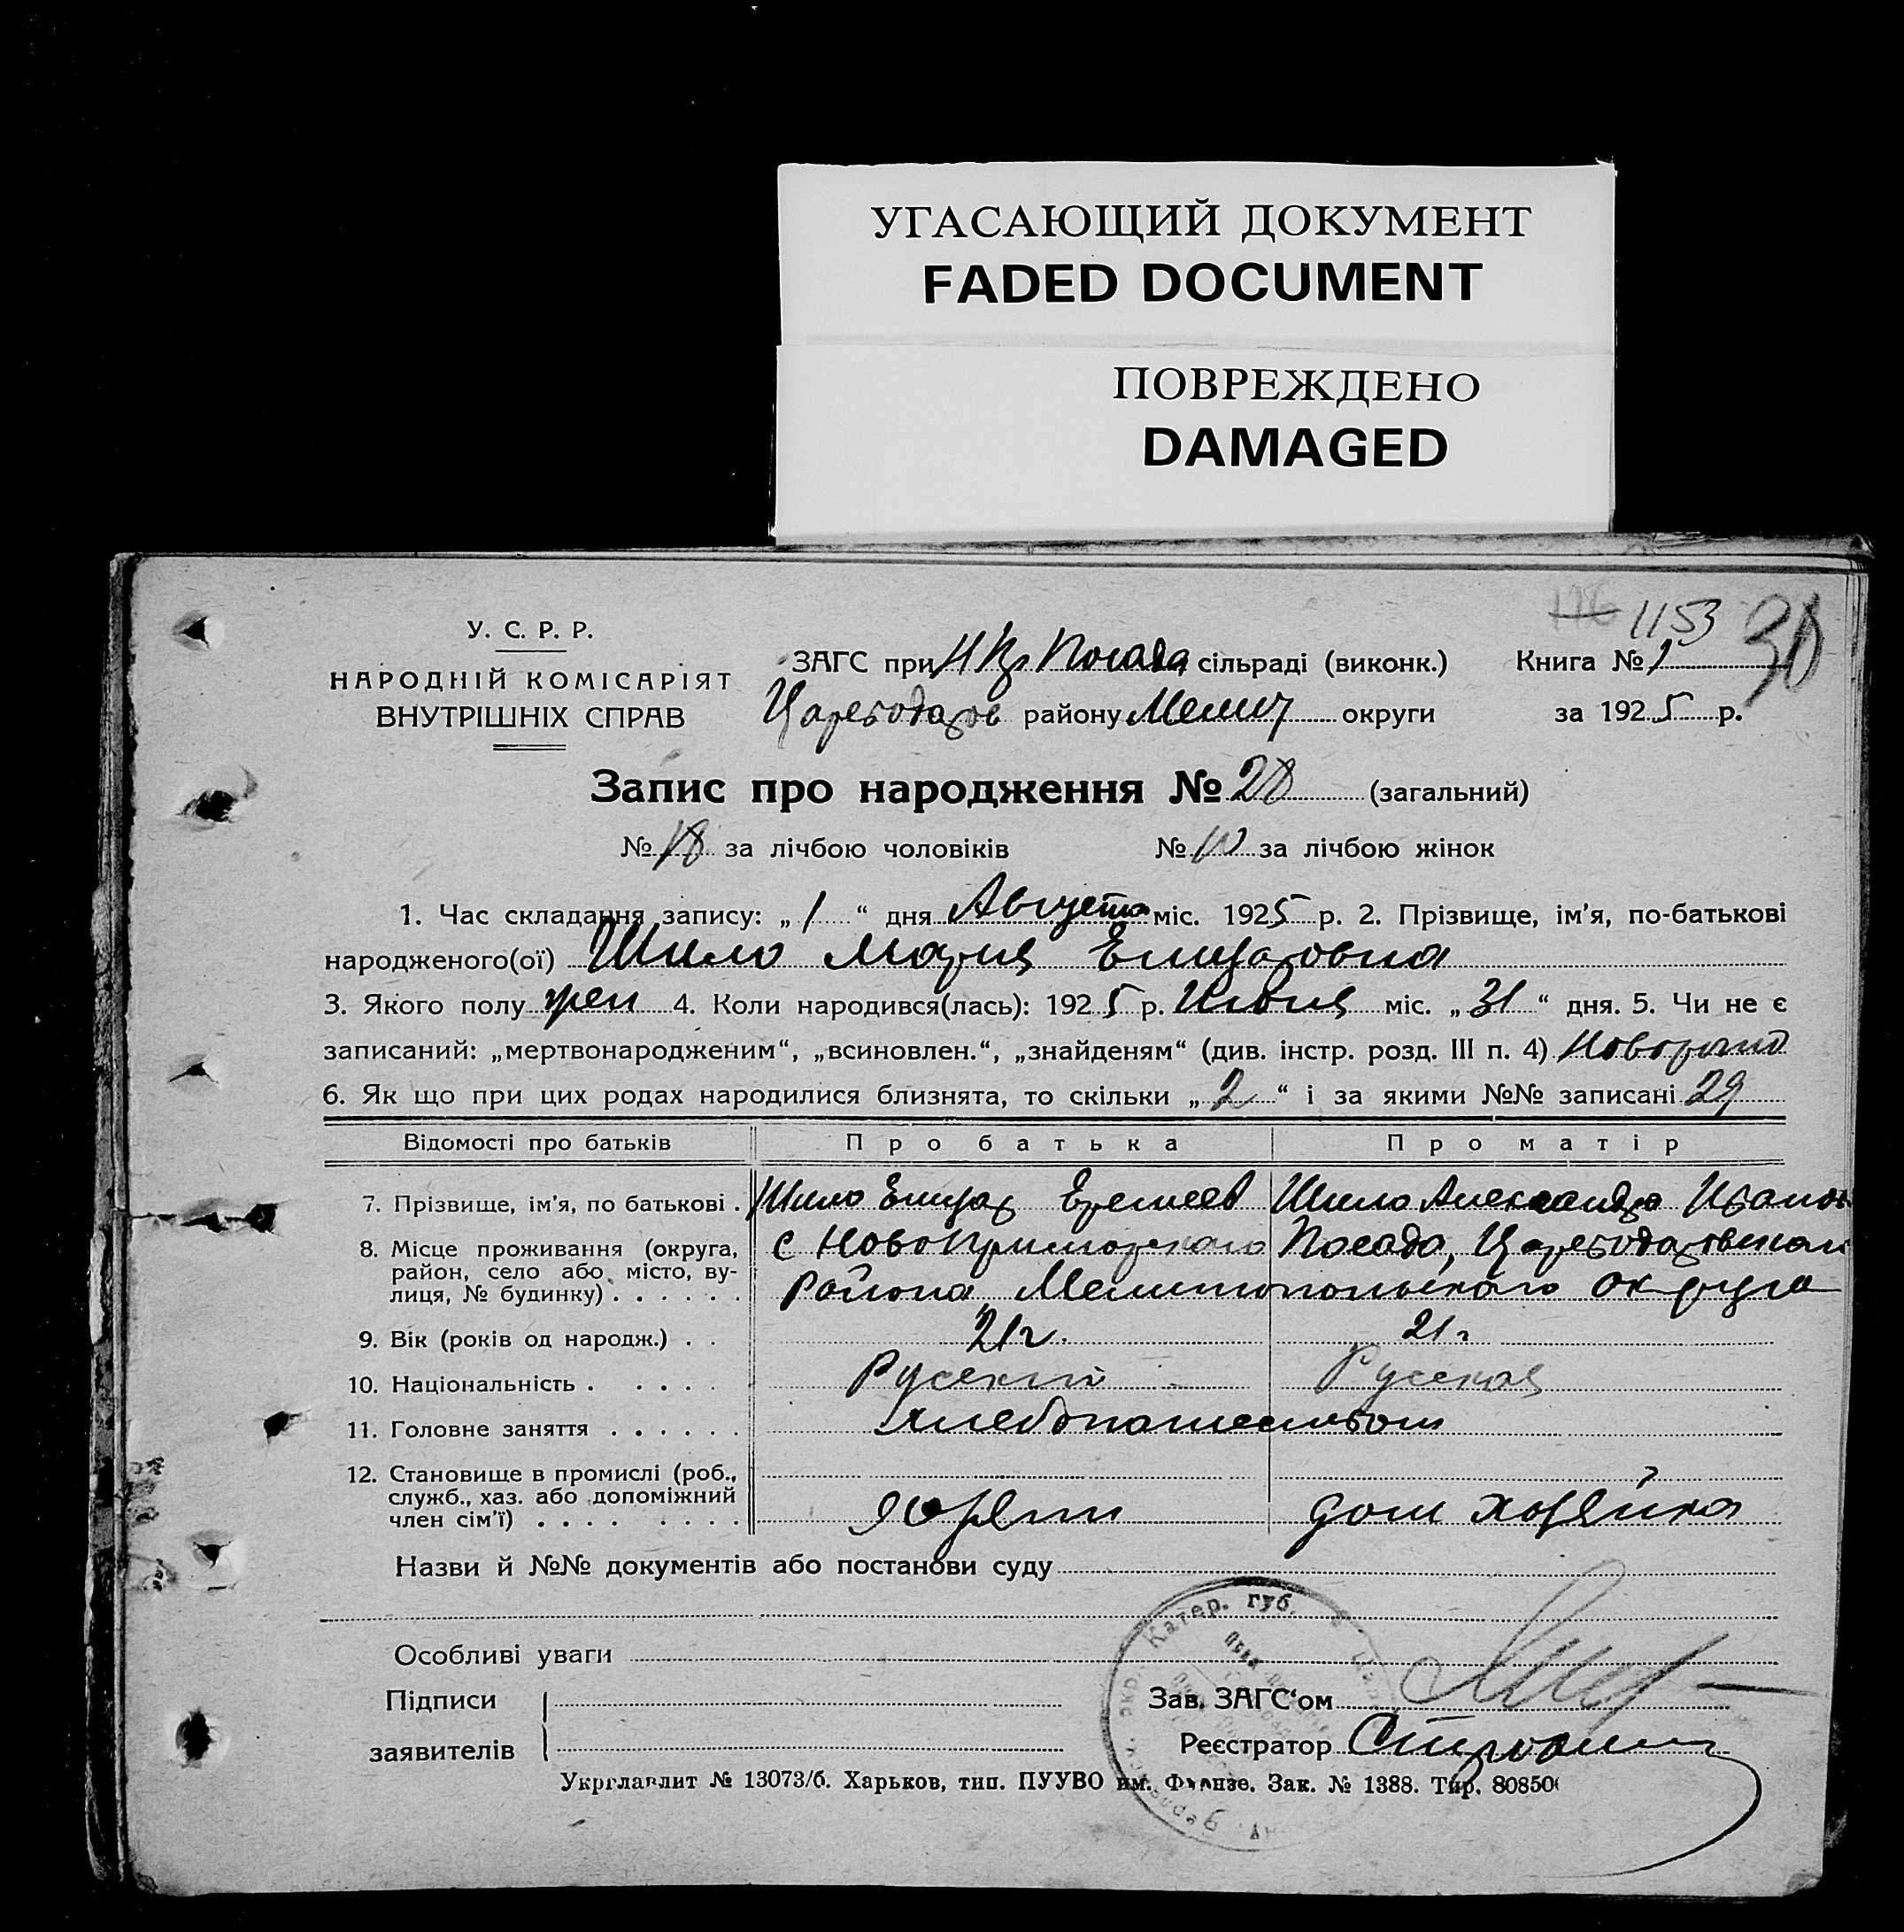 УГАСАЮЩИЙ ДОКУМЕНТ
FADED DOCUMENT
ПОВРЕЖДЕНО
DAMAGED
1153
30
У. С. Р. Р.
НАРОДНІЙ КОМІСАРІЯТ
ВНУТРІШНІХ СПРАВ
ЗАГС при Посада сільраді (виконк.) Книга № 1
Цареводаров району Мелит округи за 1925 р.
Запис про народження № 28 (загальний)
№ 18 за лічбою чоловіків № 10 за лічбою жінок
1. Час складання запису: „1“ дня Августа міс. 1925 р. 2. Прізвище, ім'я, по-батькові
народженого(ої) Шило Мария Елизаровна
3. Якого полу жен 4. Коли народився(лась): 1925 р. Июля міс. „31“ дня. 5. Чи не є
записаний: „мертвонародженим“, „всиновлен.“, „знайденям“ (див. інстр. розд. III п. 4)
6. Як що при цих родах народилися близнята, то скільки „2“ і за якими №№ записані 29
Відомості про батьків Про батька Про матір
7. Прізвище, ім'я, по батькові . Шило Елизар Еремеев Шило Александра Иванов
8. Місце проживання (округа, район, село або місто, вулиця, № будинку) . . . . . . с Новопригорского Посада, Цареводаровского
района Мелитопольского округа
9. Вік (років од народж.) . . 21 г. 21 г
10. Національність . . . . . Русский Русская
11. Головне заняття . . . . . . хлебопашеством
12. Становище в промислі (роб., служб., хаз. або допоміжний член сім'ї) . . . . . . . . хозяин дом хозяйка
Назви й №№ документів або постанови суду
Особливі уваги
Підписи
заявителів
Зав. ЗАГС'ом
Реєстратор
Катер. губ.
Укрглавлит № 13073/б. Харьков, тип. ПУУВО им. Фрунзе. Зак. № 1388. Тир. 80850